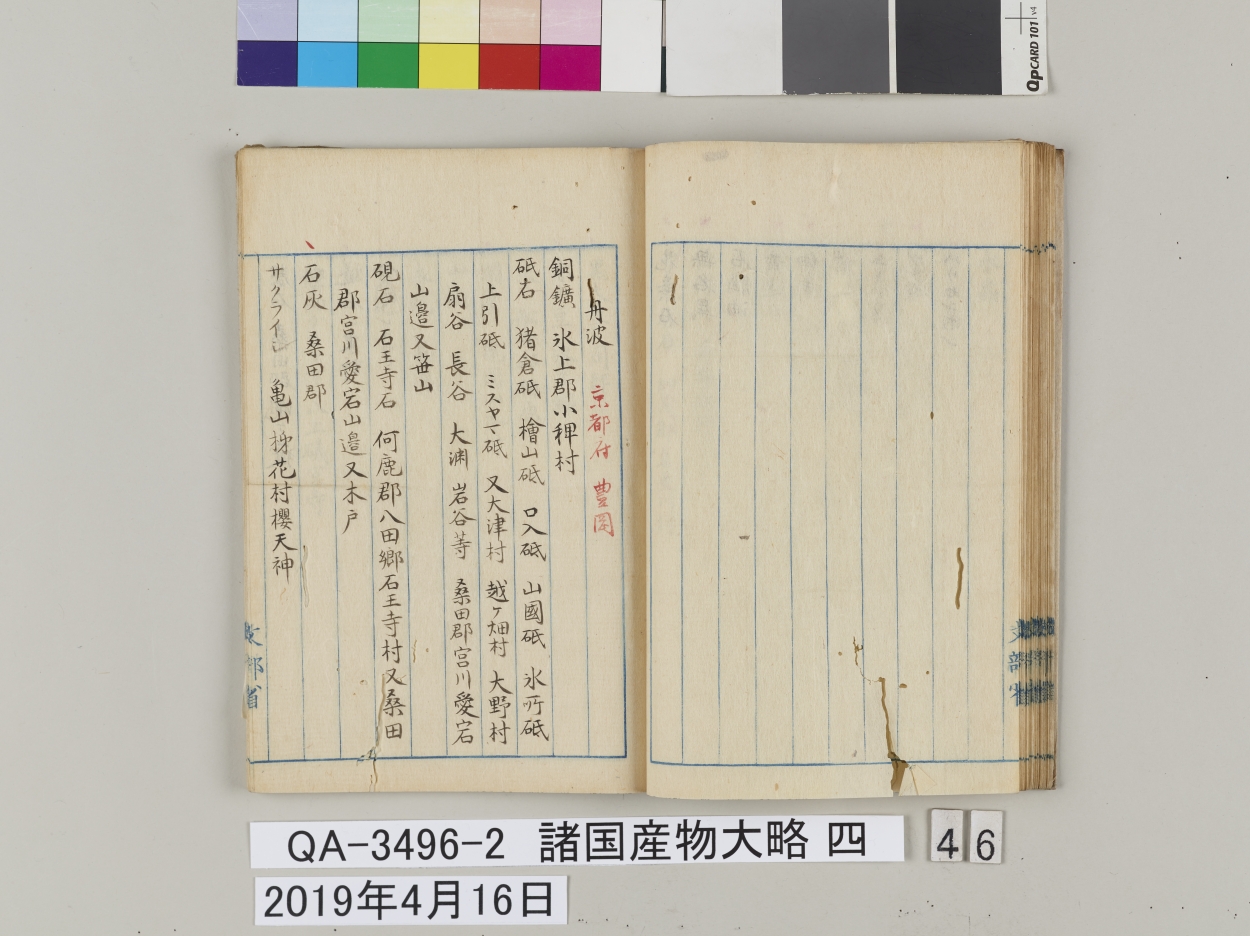 QpCARD 101 v4
丹波 京都府 豊岡
銅鑛 氷上郡小稗村
砥石 猪倉砥 檜山砥 口入砥 山國砥 氷所砥
上引砥 ミスヤマ砥 又大津村 越ケ畑村 大野村
扇谷 長谷 大渊 岩谷等 桑田郡宮川愛宕
山邉又笹山
硯石 石王寺石 何鹿郡八田郷石王寺村又桑田
郡宮川愛宕山邉又木戸
石灰 桑田郡
サクライシ 亀山 花村櫻天神
文部省
文部省
QA-3496-2 諸国産物大略 四
46
2019年4月16日